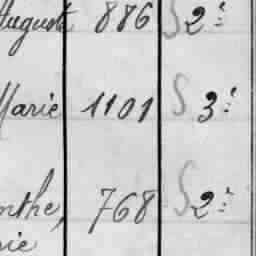 August 886 S 2e
Marie 1101 S 3e
nthe, 768 S 2e
rie